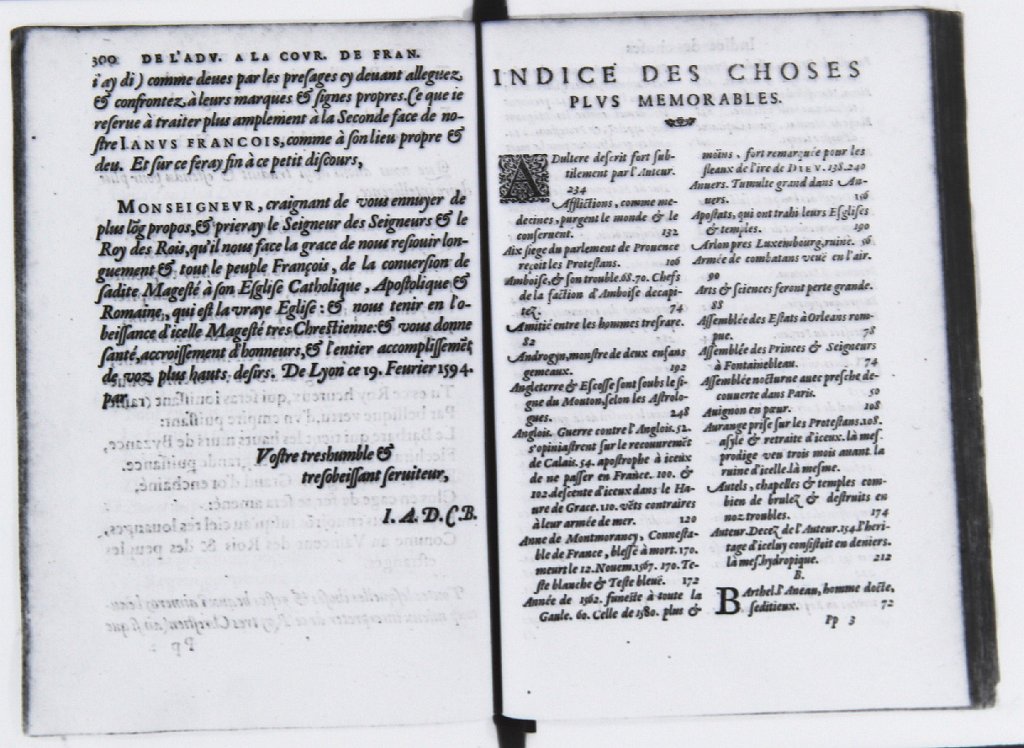 300 DE L'ADV. A LA COVR. DE FRAN.
i'ay di) comme deues par les presages cy deuant alleguez,
& confrontez à leurs marques & signes propres. Ce que ie
reserue à traiter plus amplement à la Seconde face de no-
stre IANVS FRANCOIS, comme à son lieu propre &
deu. Et sur ce feray fin à ce petit discours,
MONSEIGNEVR, craignant de vous ennuyer de
plus lõg propos, & prieray le Seigneur des Seigneurs & le
Roy des Rois, qu'il nous face la grace de nous resiouir lon-
guement & tout le peuple François, de la conuersion de
sadite Magesté à son Esglise Catholique, Apostolique &
Romaine, qui est la vraye Eglise: & nous tenir en l'o-
beissance d'icelle Magesté tres Chrestienne: & vous donne
santé, accroissement d'honneurs, & l'entier accomplissemẽt
de voz plus hauts desirs. De Lyon ce 19. Feurier 1594.
par,
Vostre treshumble &
tresobeissant seruiteur,
I. A. D. C. B.
INDICE DES CHOSES
PLVS MEMORABLES.
ADultere descrit fort sub-
tilement par l'Auteur.
234
Afflictions, comme me-
decines, purgent le monde & le
conseruent. 132
Aix siege du parlement de Prouence
reçoit les Protestans. 106
Amboise, & son trouble. 68. 70. Chefs
de la faction d'Amboise decapi-
tez. 74
Amitié entre les hommes tresrare.
82
Androgyn, monstre de deux enfans
gemeaux. 192
Angleterre & Escosse sont soubs le si-
gne du Mouton, selon les Astrolo-
gues. 248
Anglois. Guerre contre l'Anglois. 52.
s'opiniastrent sur le recouuremẽt
de Calais. 54. apostrophe à iceux
de ne passer en France. 100. &
102. descente d'iceux dans le Ha-
ure de Grace. 110. vẽts contraires
à leur armée de mer. 120
Anne de Montmorancy, Connesta-
ble de France, blessé à mort. 170.
meurt le 12. Nouem. 1567. 170. Te-
ste blanche & Teste bleuë. 172
Année de 1562. funeste à toute la
Gaule. 60. Celle de 1580. plus &
moins, fort remarquée pour les
fleaux de l'ire de DIEV. 138. 240
Anuers. Tumulte grand dans An-
uers. 156
Apostats, qui ont trahi leurs Esglises
& temples. 190
Arlon pres Luxembourg, ruiné. 96
Armée de combatans veuë en l'air.
90
Arts & sciences seront perte grande.
88
Assemblée des Estats à Orleans rom-
pue. 78
Assemblée des Princes & Seigneurs
à Fontainebleau. 74
Assemblée nocturne auec presche de-
couuerte dans Paris. 50
Auignon en peur. 108
Aurange prise sur les Protestans. 108.
asyle & retraite d'iceux. là mes.
prodige veu trois mois auant la
ruine d'icelle. là mesme.
Autels, chapelles & temples com-
bien de brulez & destruits en
noz troubles. 174
Auteur. Decez de l'Auteur. 154. l'heri-
tage d'iceluy consistoit en deniers.
là mes. hydropique. 212
B.
BArthel. l'Aneau, homme docte,
seditieux. 72
Pp 3